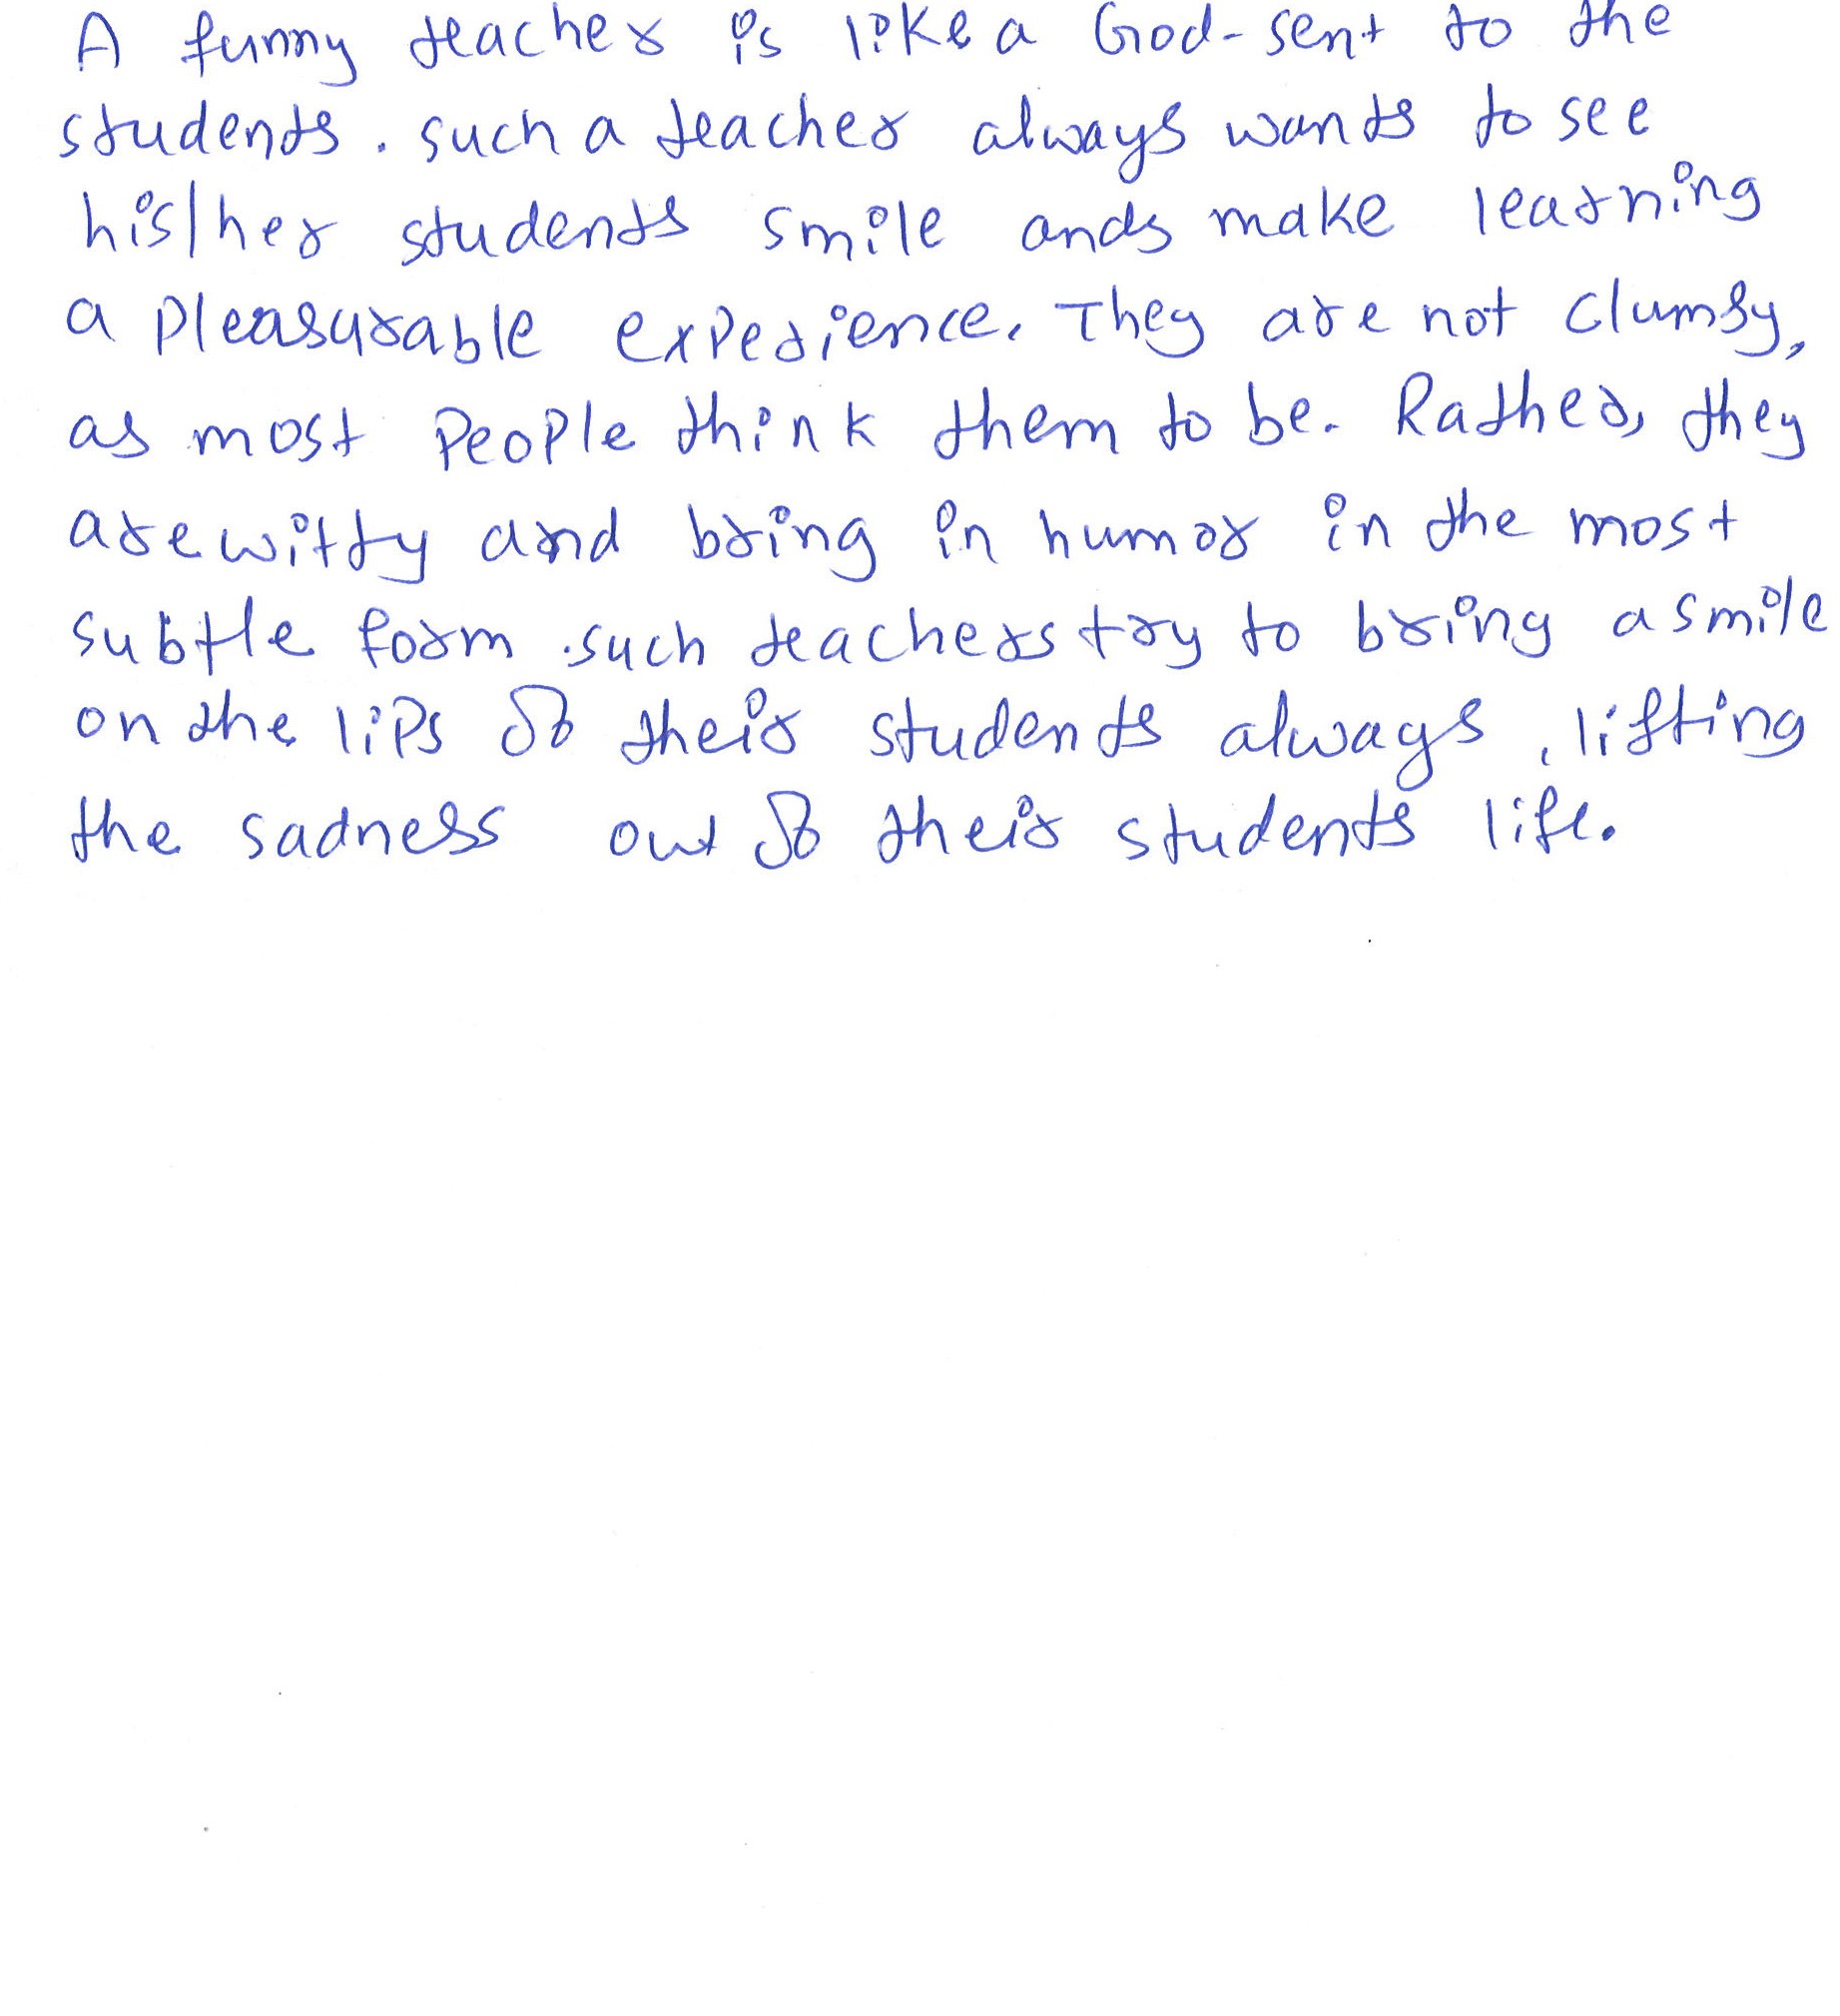 A funny teacher is like a God-sent to the
students. such a teacher always wants to see
his/her students smile ands make learning
a pleasurable experience. They are not clumsy,
as most people think them to be. Rather, they
are witty and bring in humor in the most
subtle form. such teachers try to bring a smile
on the lips of their students always, lifting
the sadness out of their students life.